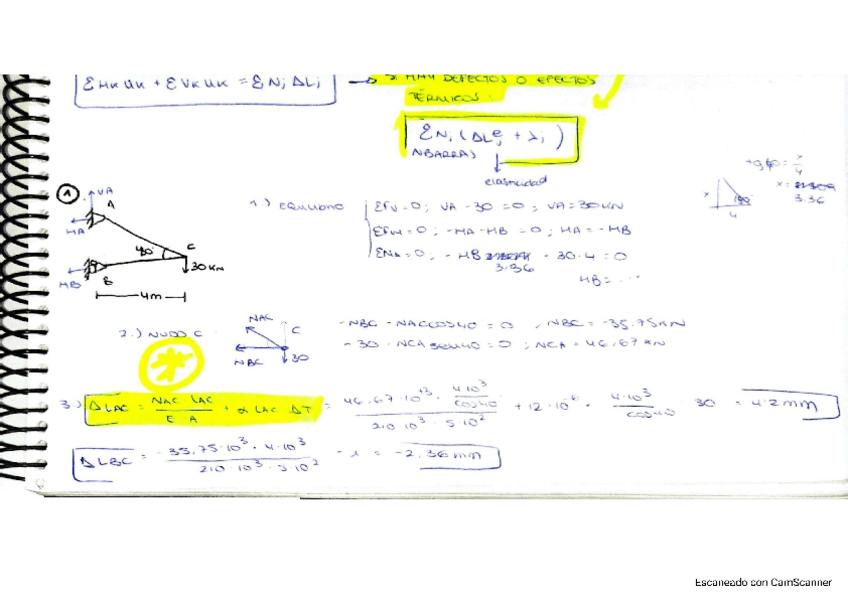 ΣHK UK + ΣVK UK = ΣNi ΔLi → SI HAY DEFECTOS O EFECTOS
TÉRMICOS:
ΣNi (ΔLi^e + λi)
NBARRAS
elasticidad
1 VA
A
HA
40°
C
30 KN
HB
B
4m
1.) EQUILIBRIO
ΣFV = 0; VA - 30 = 0; VA = 30 KN
ΣFH = 0; -HA - HB = 0; HA = -HB
ΣMA = 0, - HB 3.36 - 30·4 = 0
HB = ...
x
4
x = 3.36
2.) NUDO C
NAC
C
NBC
30
-NBC - NAC COS40 = 0, NBC = -35.75KN
-30 · NCA sen40 = 0; NCA = 46.67 KN
3.) ΔLAC = NAC LAC / E A + α LAC ΔT = 46.67·10^+3 · 4·10^3/cos40 / 210·10^3 · 5·10^2 + 12·10^-6 · 4·10^3/cos40 · 30 = 4.2 mm
ΔLBC = -35.75·10^3 · 4·10^3 / 210·10^3 · 5·10^2 - 1 = -2.36 mm
Escaneado con CamScanner